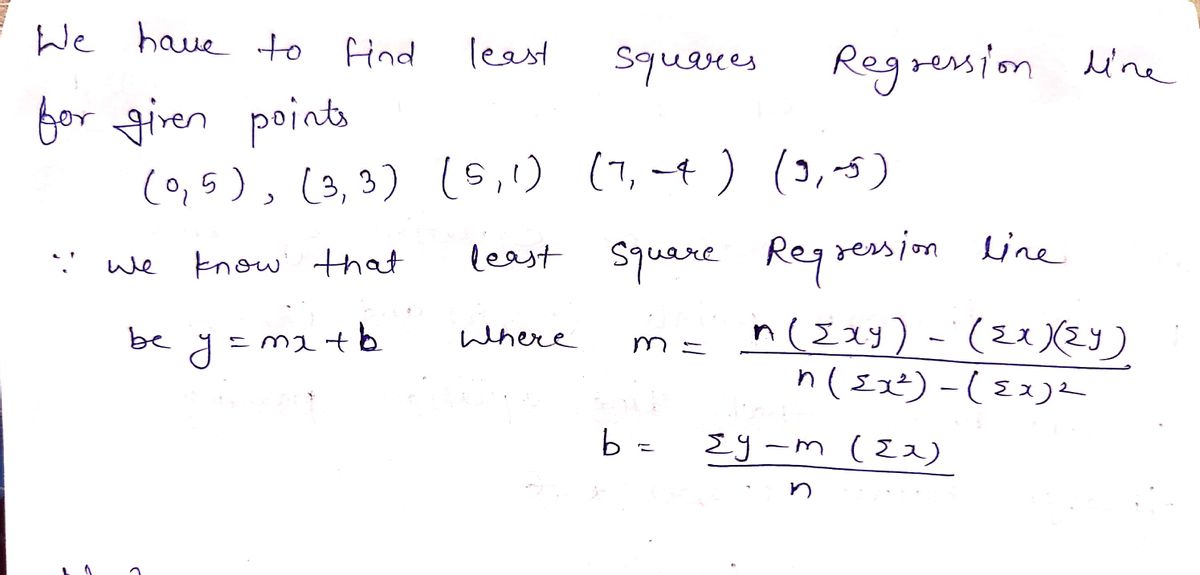 We have to find least squares Regression line
for given points
(0,5), (3,3) (5,1) (7,-4) (9,-5)
∵ we know that least square Regression line
be y = mx + b where m = n(Σxy) - (Σx)(Σy) / n(Σx²) - (Σx)²
b = Σy - m (Σx) / n